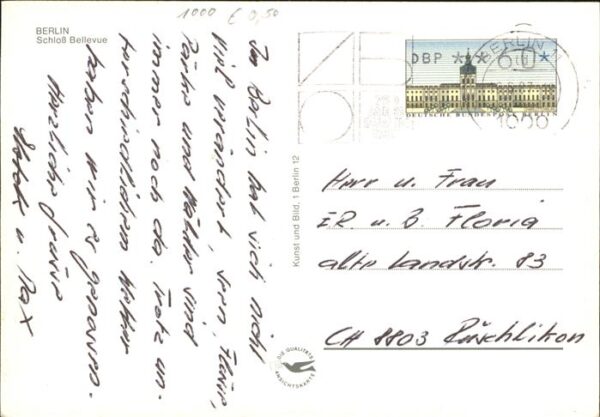 BERLIN
Schloß Bellevue
1000 € 0,50
In Berlin hat sich nicht
viel verändert,
Türme und Mauer sind
immer noch da. Trotz un-
terschiedlichem Wetter
haben wir's genossen.
Herzliche Grüsse
u. Max
Kunst und Bild, 1 Berlin 12
DBP ***60*
DEUTSCHE BUNDESPOST
BERLIN
1000
Herr u. Frau
E.R. u. B. Floria
alte Landstr. 83
CH 8803 Rüschlikon
DIE QUALITÄTS
ANSICHTSKARTE